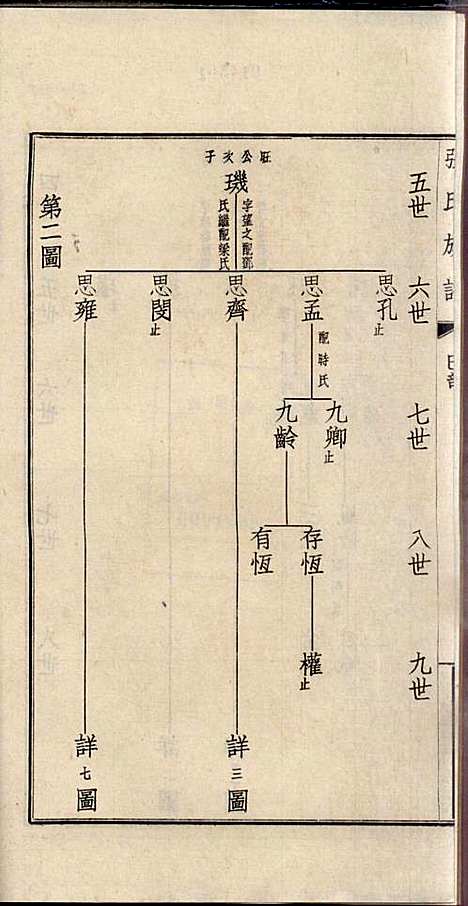 張氏族譜
五世
六世
七世
八世
九世
旺公次子
璣
字望之配鄧
氏繼配梁氏
思孔
止
思孟
配時氏
九卿
止
九齡
存恆
權
止
有恆
思齊
詳三圖
思閔
止
思雍
詳七圖
第二圖